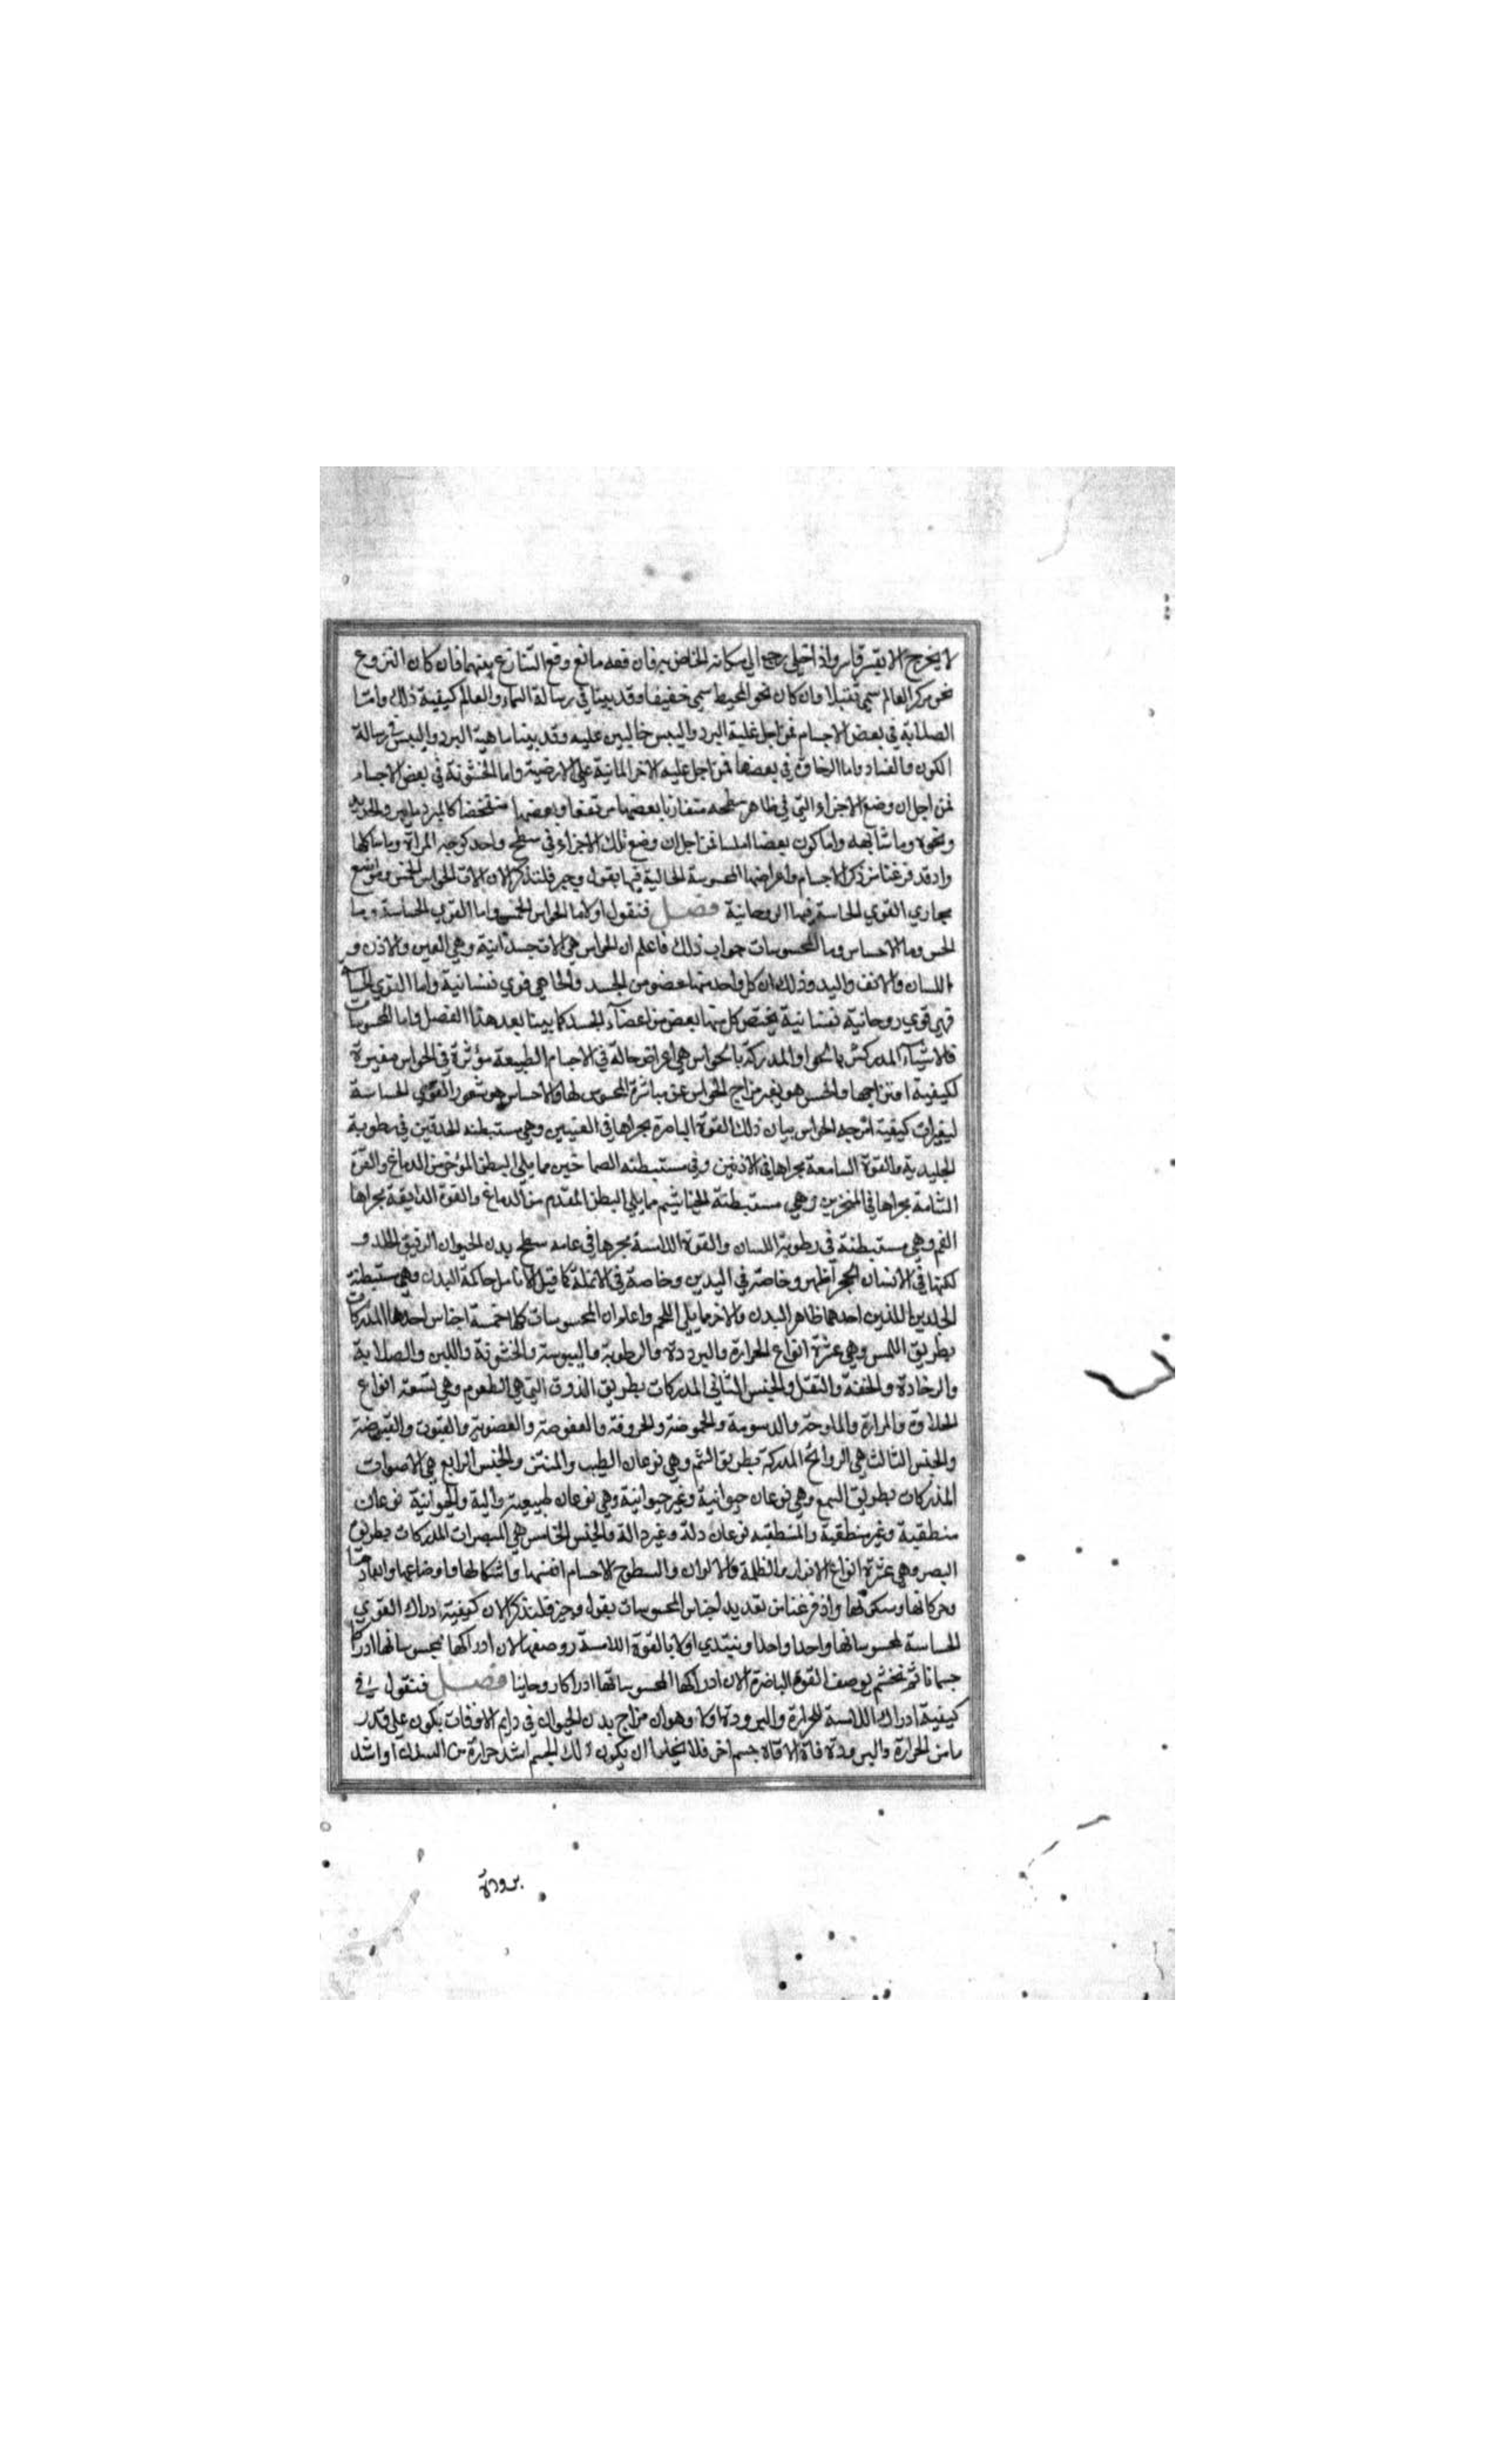 لا يخرج الا بقسر قاسر واذا خلي رجع الي مكانه الخاص به فان منعه مانع وقع التنازع بينهما فان كان النزوع
نحو مركز العالم سمي ثقيلا وان كان نحو المحيط سمي خفيفا وقد بينا في رسالة السماء والعالم كيفية ذلك واما
الصلابة في بعض الاجسام فمن اجل غلبة البرد واليبس عليه وقد بينا ماهية البرد واليبس في رسالة
الكون والفساد واما الرخاوة في بعضها فمن اجل غلبة الاجزا المائية علي الارضية واما الخشونة في بعض الاجسام
فمن اجل ان وضع الاجزاء التي في ظاهر سطحه متفاوتا بعضها مرتفعا وبعضها منخفضا كالمبرد والحديد
ونحوه وما شابهه واما كون بعضها املسا فمن اجل ان وضع تلك الاجزاء في سطح واحد كوجه المراة وما شاكلها
واذ قد فرغنا من ذكر الاجسام واعراضها المحسوسة الحالية فيها بقول وجيز فلنذكر الان الات الحواس الخمس ومواضع
مجاري القوي الحاسة فيها الروحانية فصل فنقول اولا ما الحواس الخمس واما القوي الحساسة وما
الحس وما الاحساس وما المحسوسات جواب ذلك فاعلم ان الحواس هي الات جسدانية وهي العين والاذن و
اللسان والانف واليد وذلك ان كل واحد منها عضو من الجسد وانما هي قوي نفسانية واما القوي الحساسة
فهي قوي روحانية نفسانية يختص كل منها ببعض من اعضاء الجسد كما بينا بعد هذا الفصل واما المحسوسات
فالاشياء المدركة بالحواس هي اعراض حالة في الاجسام الطبيعة مؤثرة في الحواس مغيرة
لكيفية امتزاجها والحس هو تغير مزاج الحواس عن مباشرة المحسوس لها والاحساس هو شعور القوي الحساسة
لتغيرات كيفية امزجة الحواس بيان ذلك القوة الباصرة مجراها في العينين وهي مستبطنه الحدقتين في رطوبة
الجليدية والقوة السامعة مجراها في الاذنين وهي مستبطنه الصماخين مما يلي البطن المؤخر من الدماغ والقوة
الشامة مجراها في المنخرين وهي مستبطنة الخياشيم مما يلي البطن المقدم من الدماغ والقوة الذايقة مجراها
الفم وهي مستبطنة في رطوبة اللسان والقوة اللامسة مجراها في عامه سطح بدن الحيوان الرقيق الجلد و
لكنها في الانسان اظهر وخاصة في اليدين وخاصة في الانملة كما قيل الانامل حاكة البدن وهي مستبطنة
الجلدين اللذين احدهما ظاهر البدن والاخر ما يلي اللحم واعلم ان المحسوسات كلها خمسة اجناس احدها المدركات
بطريق اللمس وهي عشرة انواع الحرارة والبرودة والرطوبة واليبوسة والخشونة واللين والصلابة
والرخاوة والخفة والثقل والجنس الثاني المدركات بطريق الذوق التي هي الطعوم وهي تسعة انواع
الحلاوة والمرارة والملوحة والدسومة والحموضة والحروفة والعفوصة والعذوبة والقبوضة
والجنس الثالث هي الروائح المدركة بطريق الشم وهي نوعان الطيب والمنتن والجنس الرابع هي الاصوات
المذركات بطريق السمع وهي نوعان حيوانية وغير حيوانية وهي نوعان طبيعية والية والحيوانية نوعان
منطقية وغير منطقية والمنطقيه نوعان دلة وغير دالة والجنس الخامس هي المبصرات المدركات بطريق
البصر وهي عشرة انواع الانوار والظلمة والالوان والسطوح الاجسام انفسها واشكالها واوضاعها وابعادها
وحركاتها وسكونها واذ فرغنا من تعديد اجناس المحسوسات بقول وجيز فلنذكر الان كيفية ادراك القوي
الحساسة لمحسوساتها واحدا واحدا ونبتدي اولا بالقوة اللامسة ووصفها لان ادراكها لمحسوساتها ادراكا
جسمانيا ثم نختم بوصف القوة الباصرة لان ادراكها لمحسوساتها ادراكا روحانيا فصل فنقول في
كيفية ادراك اللامسة للحرارة والبرودة اولا وهو ان مزاج بدن الحيوان في دايم الاوقات يكون علي قدر
ما من الحرارة والبرودة فاذا لاقاه جسم اخر فلا يخلو اما ان يكون ذلك الجسم اشد حرارة من البدن او اشد
برودة